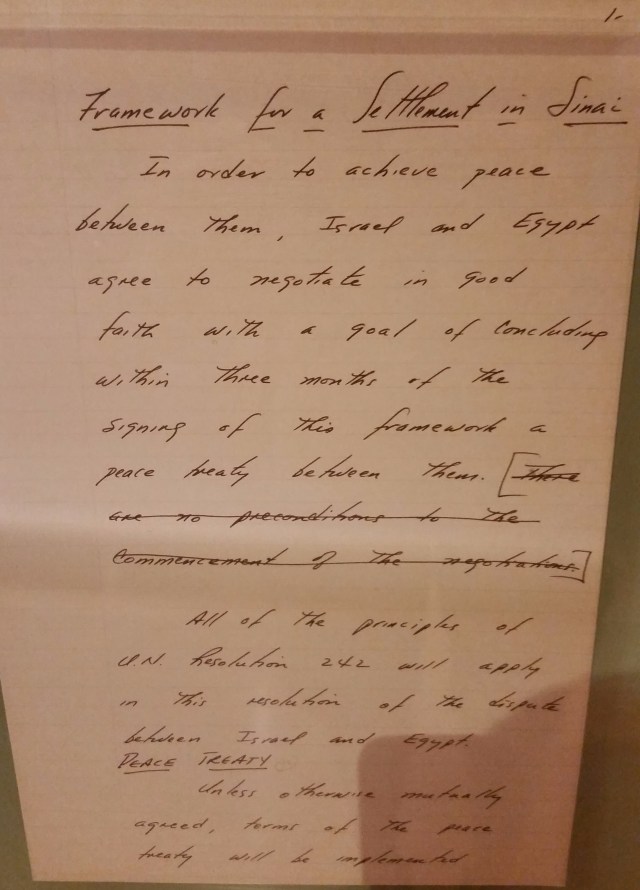 1-
Framework for a Settlement in Sinai
In order to achieve peace
between them, Israel and Egypt
agree to negotiate in good
faith with a goal of concluding
within three months of the
signing of this framework a
peace treaty between them. [There
are no preconditions to the
commencement of the negotiations.]
All of the principles of
U.N. Resolution 242 will apply
in this resolution of the dispute
between Israel and Egypt.
PEACE TREATY
Unless otherwise mutually
agreed, terms of the peace
treaty will be implemented